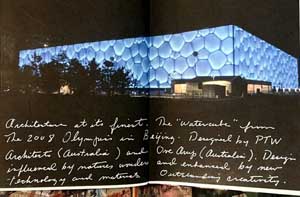 Architecture at its finest. The "Watercube" from
The 2008 Olympics in Beijing. Designed by PTW
Architects (Australia) and Ove Arup (Australia). Design
influenced by natures wonders and enhanced by new
technology and materials. Outstanding creativity.